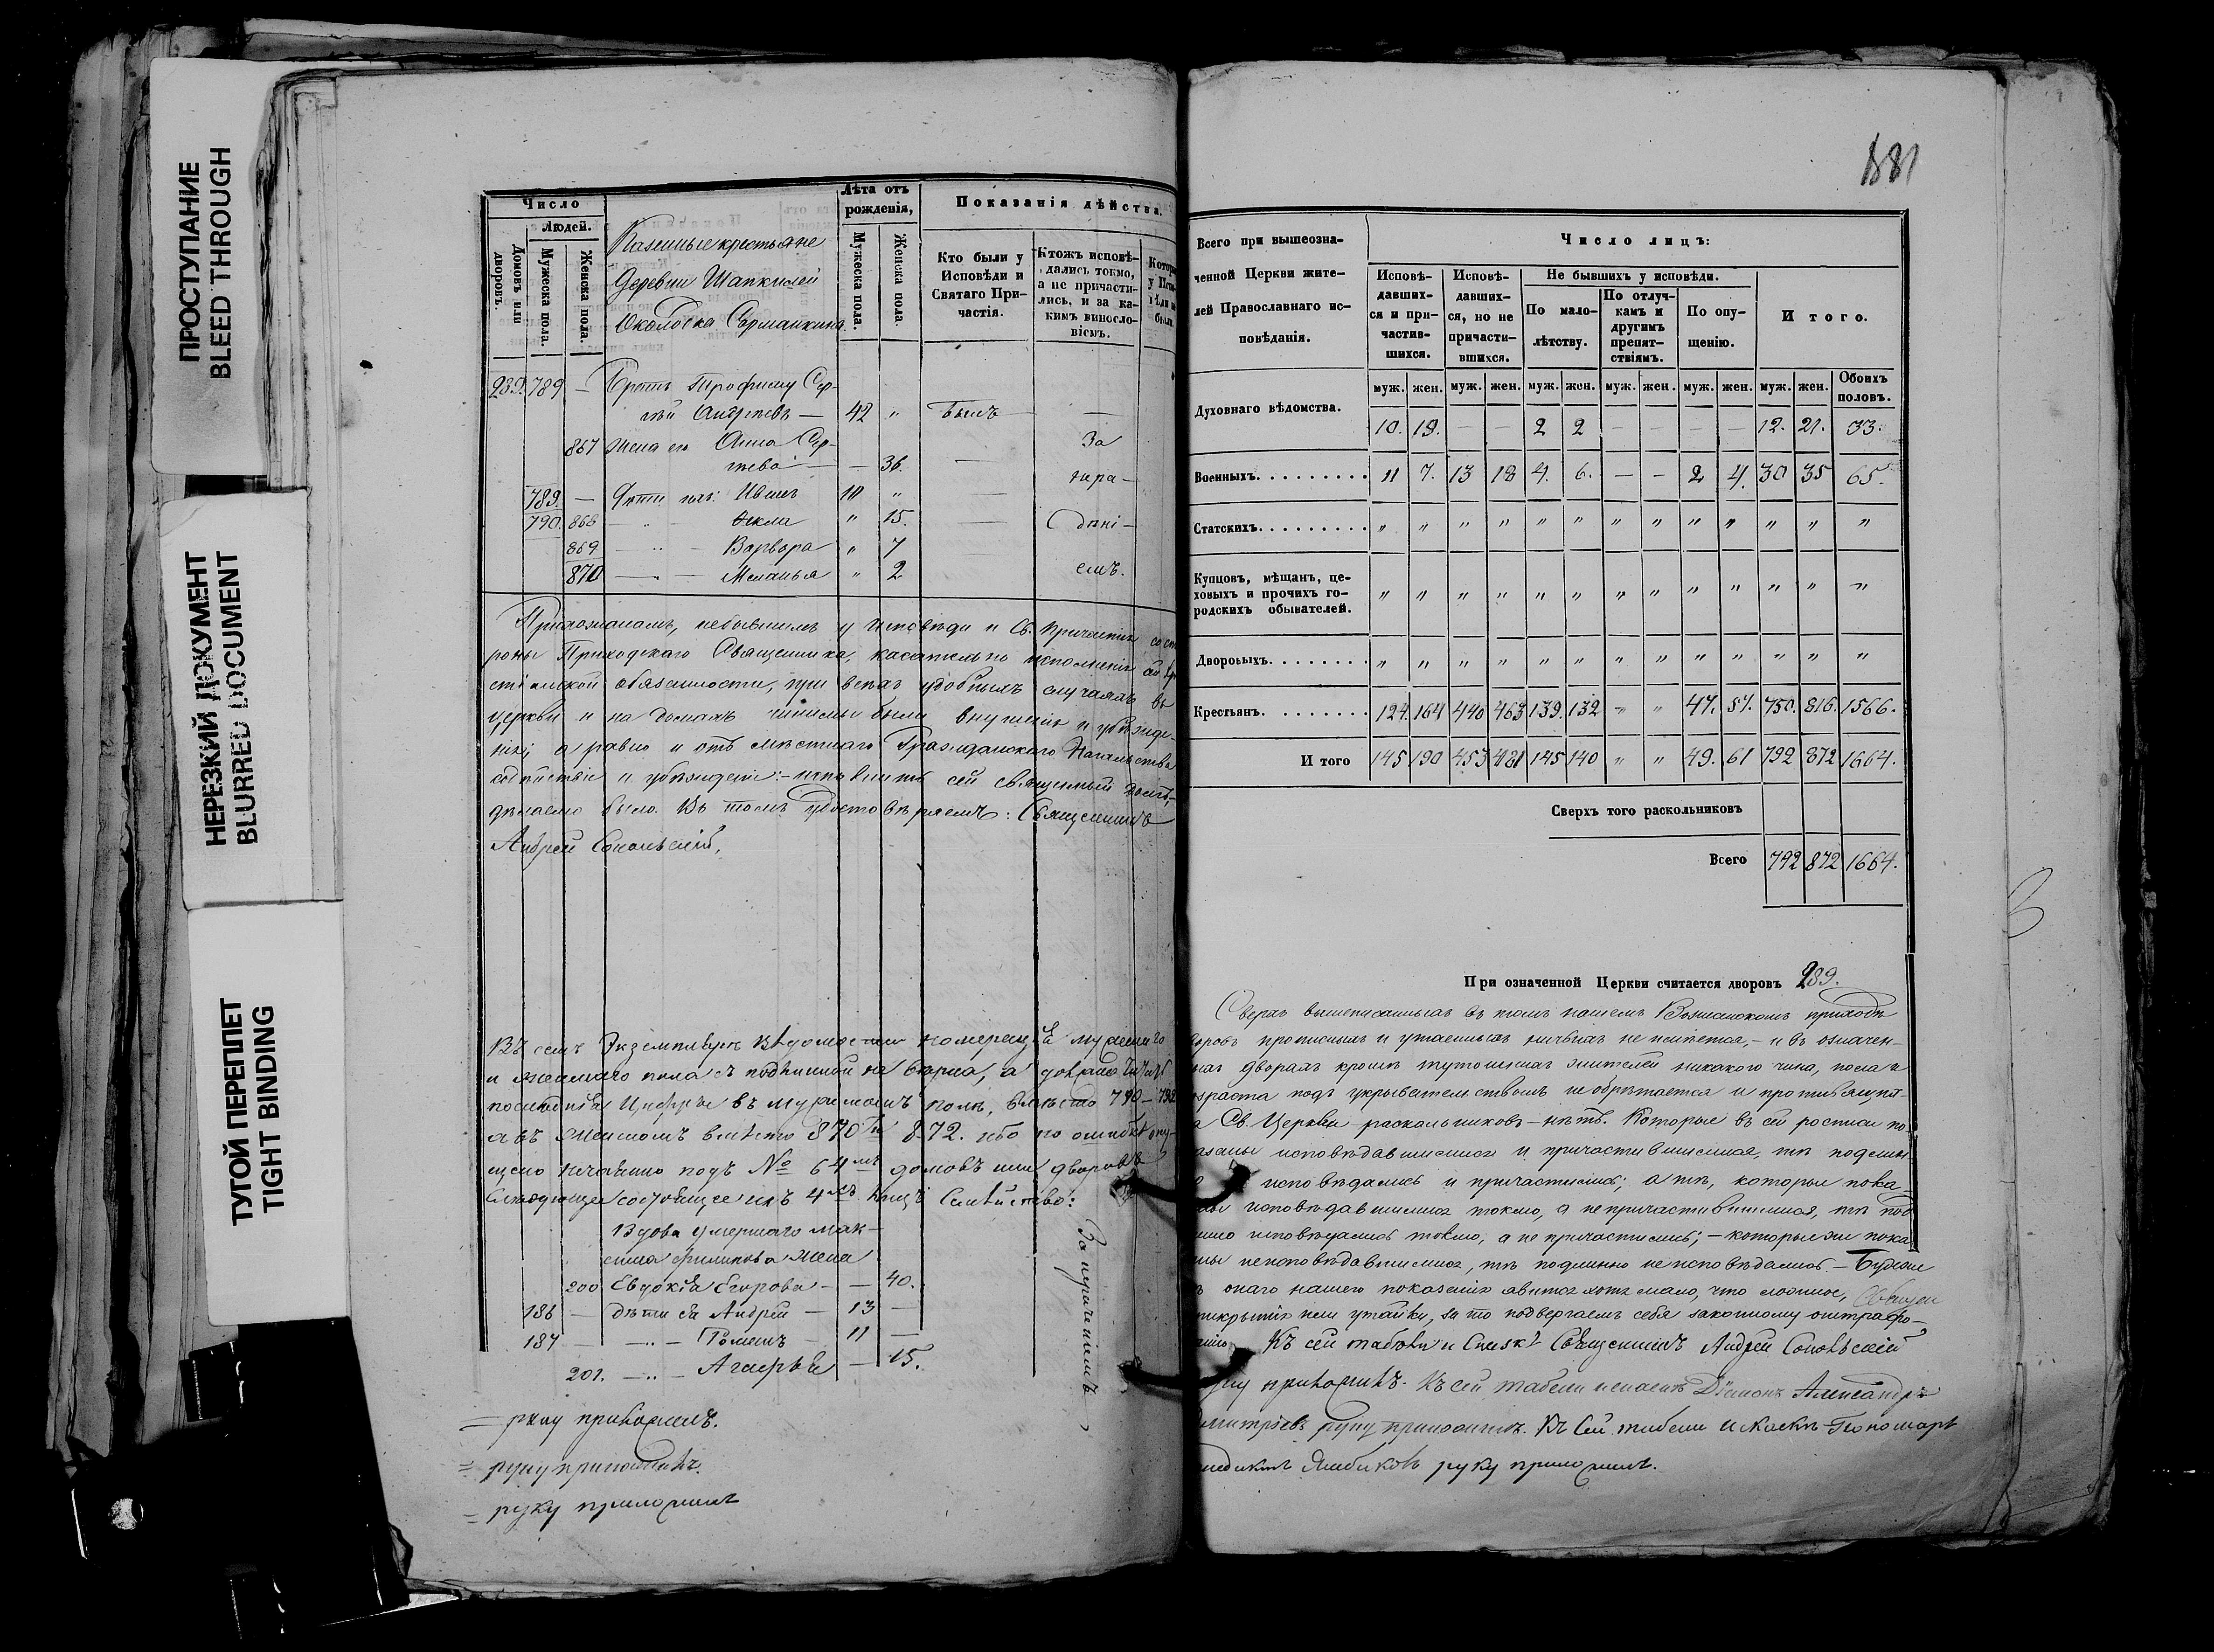 ПРОСТУПАНИЕ
BLEED THROUGH
НЕРЕЗКИЙ ДОКУМЕНТ
BLURRED DOCUMENT
ТУГОЙ ПЕРЕПЛЕТ
TIGHT BINDING
Число
Людей.
Домовъ или дворовъ.
Мужеска пола.
Женска пола.
Казенные крестьяне
деревни Шапкилей
Околодка Сормапкина
Лѣта отъ рожденія,
Мужеска пола.
Женска пола.
Показанія дѣйства.
Кто были у
Исповѣди и
Святаго При-
частія.
Ктожъ исповѣ-
дались токмо,
а не причасти-
лись, и за ка-
кимъ винозло-
віемъ.
239. 789 — Братъ Трофиму Сер-
гѣй Андреевъ — 42 " былъ —
867 жена его Анна Сер-
гѣева — — 36. — За
789. — Дѣти ихъ: Иванъ 10 " — нера-
790 868 — " — Ѳекла " 15. — дѣні-
869 — " — Варвара " 7
870 — " — Меланья " 2 емъ.
Прихожанамъ, небывшимъ у Исповѣди и Св. Причастія со ст
роны Приходскаго Священника, касательно исполненія
обязанности, при всѣхъ удобныхъ случаяхъ въ
церкви и на домахъ чинимы были внушенія и убѣжде-
нія, а равно и отъ мѣстнаго Гражданскаго Начальства
содѣйствіе и убѣжденіе: исполнить сей священный долгъ,
дѣлаемо было. Въ томъ удостовѣряемъ: Священникъ
Андрей Сокольскій,
Въ семъ Экземплярѣ вѣдомости
и женскаго пола съ
въ мужескомъ полѣ, вмѣсто 790 — 792
а въ женскомъ вмѣсто 870 872. ибо по ошибкѣ опу-
щено нечаянно подъ № 64мъ домовъ или дворовъ
слѣдующее состоящее изъ 4хъ лицъ Семейство:
Вдова умершаго Мак-
сима Филипова жена
200 Евдокія Егорова — — 40.
186 — дѣти ея Андрей — 13 —
187 — — " — Романъ — 11 —
201. — " — Агафья — 15.
— руку приложилъ.
= руку приложилъ.
= руку приложилъ
881
Всего при вышеозна-
ченной Церкви жите-
лей Православнаго ис-
повѣданія.
Число лицъ:
Исповѣ-
давших-
ся и при-
частив-
шихся.
Исповѣ-
давших-
ся, но не
причасти-
вшихся.
Не бывшихъ у исповѣди.
По мало-
лѣтству.
По отлуч-
камъ и
другимъ
препят-
ствіямъ.
По опу-
щенію.
Итого.
муж. жен. муж. жен. муж. жен. муж. жен. муж. жен. муж. жен. Обоихъ половъ.
Духовнаго вѣдомства. 10. 19. — — 2 2 — — — — 12. 21. 33.
Военныхъ. 11 7. 13 18 4. 6. — — 2 4. 30 35 65.
Статскихъ. " " " " " " " " " " " " "
Купцовъ, мѣщанъ, це-
ховыхъ и прочихъ го-
родскихъ обывателей. " " " " " " " " " " " " "
Дворовыхъ. " " " " " " " " " " " " "
Крестьянъ. 124. 164 440 463 139. 132 " " 47. 57. 750. 816. 1566.
И того 145 190 453 481 145 140 " " 49. 61 792 872 1664.
Сверхъ того раскольниковъ
Всего 792 872 1664.
При означенной Церкви считается дворовъ 239.
Сверхъ вышеписанныхъ въ томъ нашемъ приходѣ
прописныхъ и утаенныхъ ничьихъ не имѣется, — и въ означен-
дворахъ кромѣ тутошнихъ жителей никакого чина, пола и
подъ укрывательствомъ не обрѣтается и противящих-
Св. Церкви раскольниковъ — нѣтъ. Которые въ сей росписи по-
исповѣдавшимися и причастившимися, тѣ подлин-
исповѣдались и причастились; а тѣ, которые пока-
исповѣдавшимися токмо, а не причастившимися, тѣ под
исповѣдались токмо, а не причастились; — которые же пока
неисповѣдавшимися, тѣ подлинно неисповѣдались. — Буде же
онаго нашего показанія явится хотя мало, что ложное,
или утайки, за то подвергаемъ себя законному оштрафо-
Къ сей табели и Священникъ Андрей Сокольскій
приложилъ. Къ сей табели и Діаконъ Александръ
руку приложилъ. Къ сей табели и Пономарь
руку приложилъ.